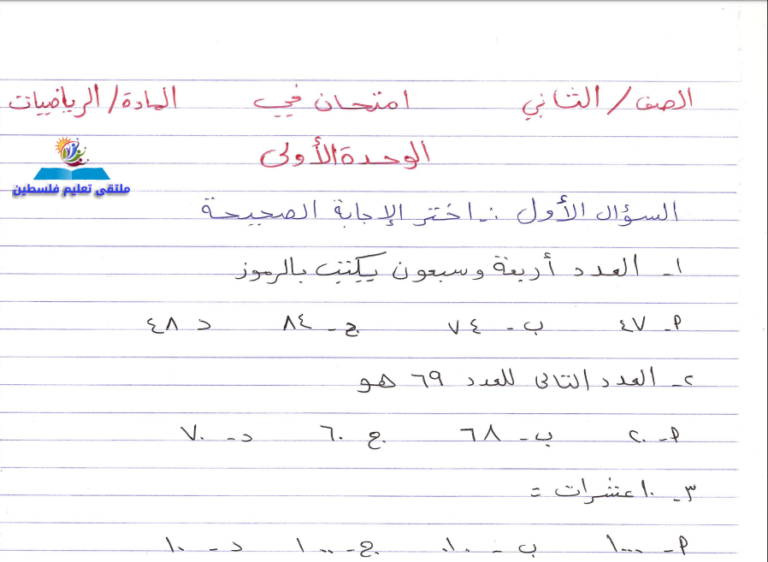 الصف / الثاني امتحان في المادة / الرياضيات
الوحدة الأولى
ملتقى تعليم فلسطين
السؤال الأول :- اختر الإجابة الصحيحة
١- العدد أربعة وسبعون يكتب بالرموز
٩- ٤٧ ب- ٧٤ ج- ٨٤ د ٤٨
٢- العدد التالي للعدد ٦٩ هو
٩- ٢٠ ب- ٦٨ ج ٦٠ د- ٧٠
٣- ١٠ عشرات =
٩- ١٠٠٠ ب- ٠١٠ ج- ١٠٠ د- ١٠